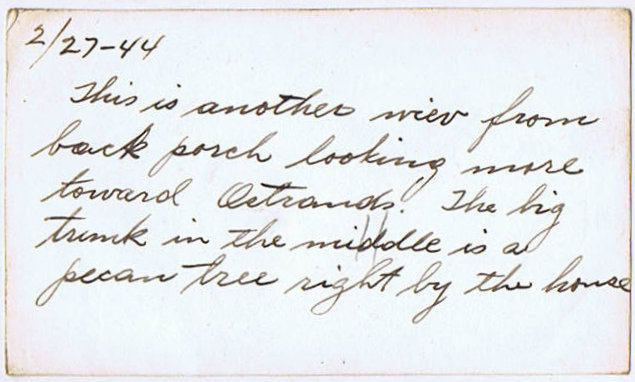 2/27-44
This is another wiev from
back porch looking more
toward Ostrands. The big
trunk in the middle is a
pecan tree right by the house